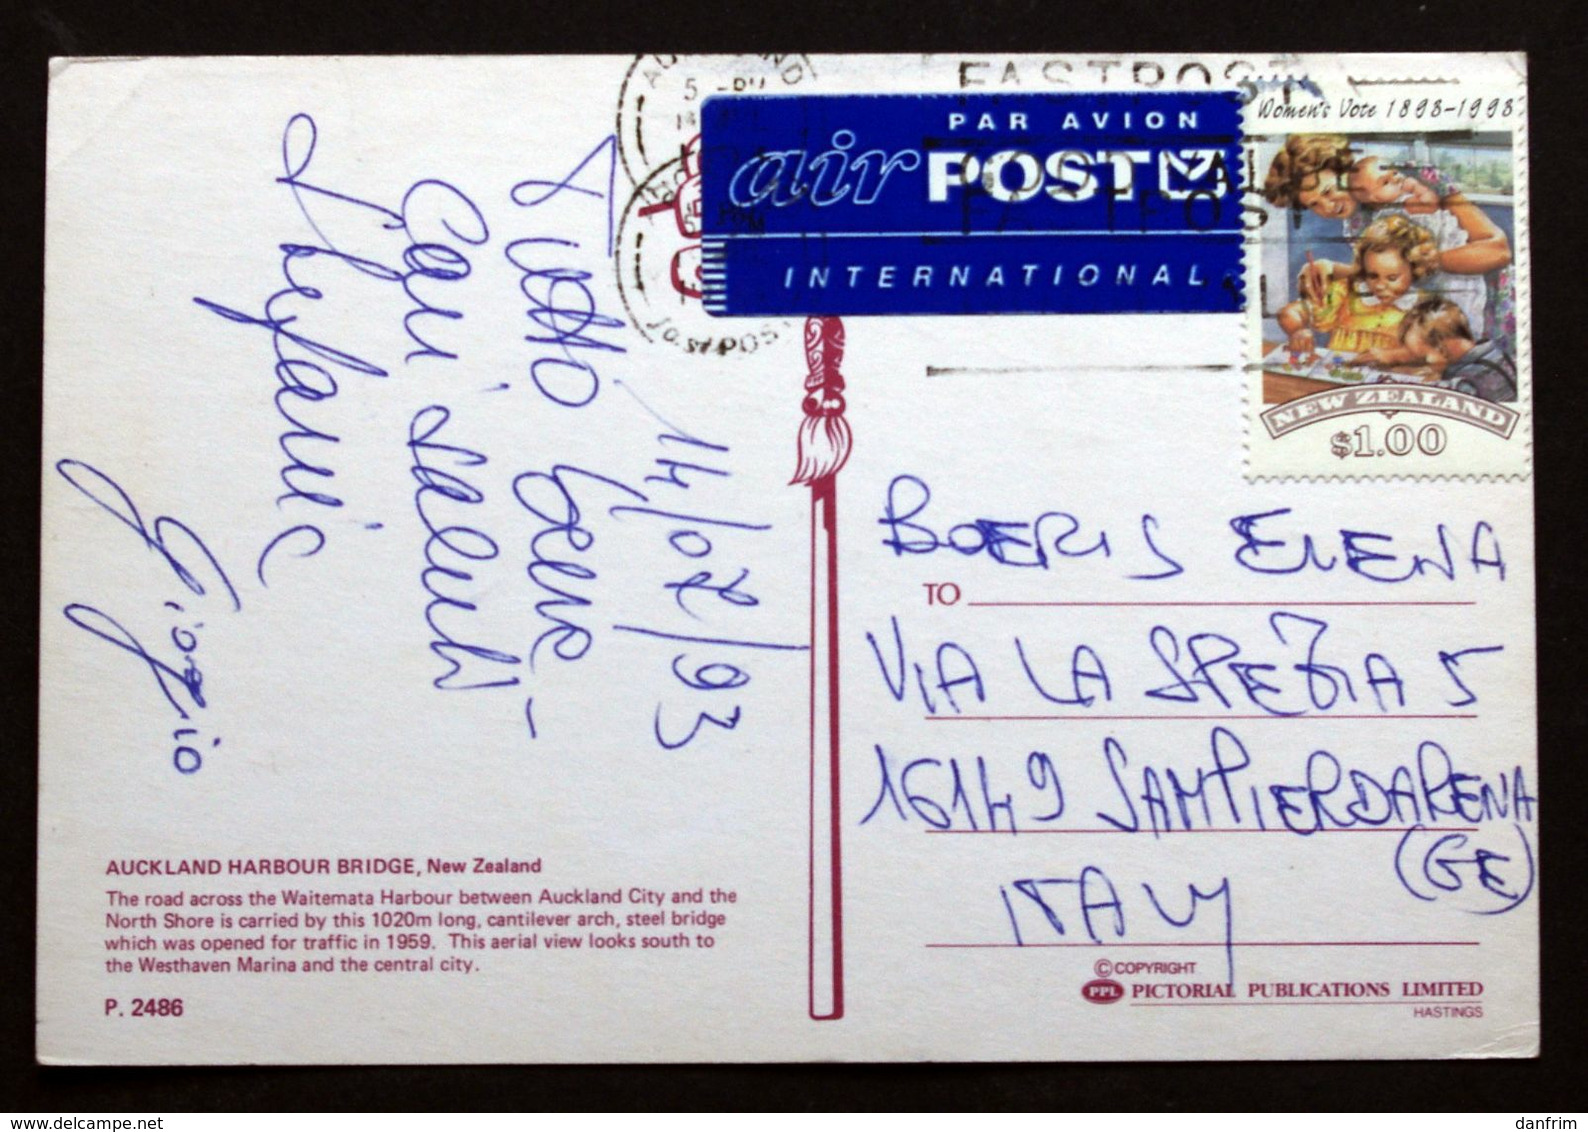 14/02/93
Tutto bene -
Cari saluti
Stefania
Giorgio
AUCKLAND HARBOUR BRIDGE, New Zealand
The road across the Waitemata Harbour between Auckland City and the
North Shore is carried by this 1020m long, cantilever arch, steel bridge
which was opened for traffic in 1959. This aerial view looks south to
the Westhaven Marina and the central city.
P. 2486
FASTPOST
PAR AVION
air POST
INTERNATIONAL
Women's Vote 1893-1993
NEW ZEALAND
$1.00
BOERIS ELENA
TO
VIA LA SPEZIA 5
16149 SAMPIERDARENA
(GE)
ITALY
© COPYRIGHT
PPL PICTORIAL PUBLICATIONS LIMITED
HASTINGS
www.delcampe.net
danfrim